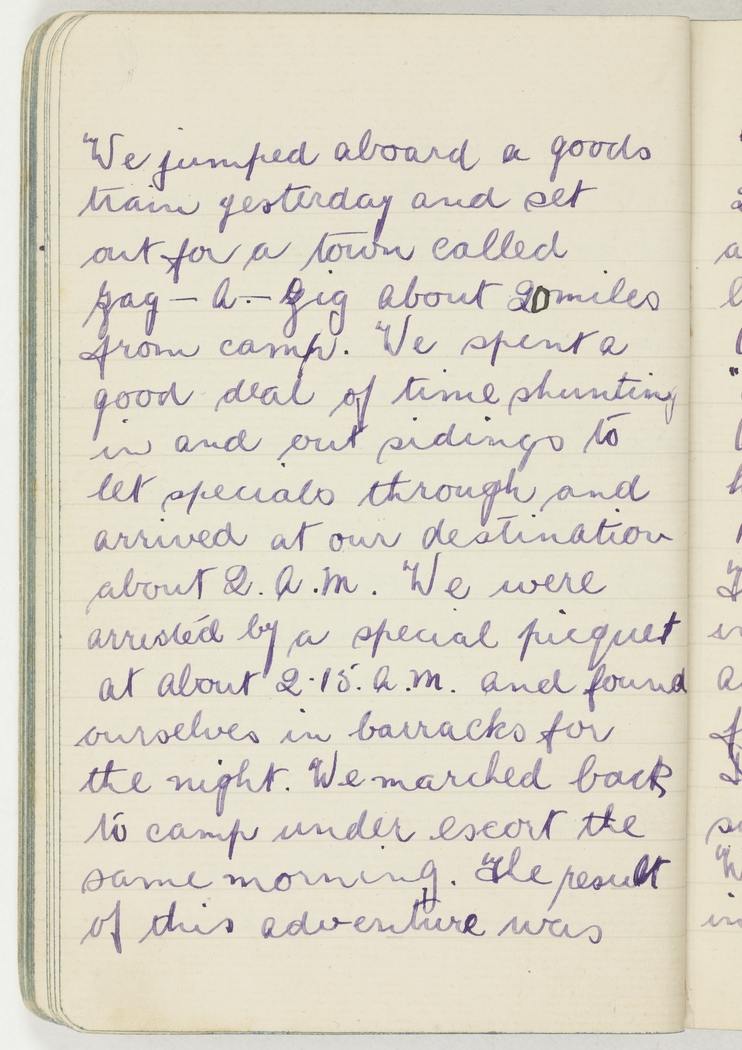 We jumped aboard a goods
train yesterday and set
out for a town called
Zag-A-Zig about 20 miles
from camp. We spent a
good deal of time shunting
in and out sidings to
let specials through and
arrived at our destination
about 2.A.M. We were
arrested by a special picquet
at about 2.15.A.M. and found
ourselves in barracks for
the night. We marched back
to camp under escort the
same morning. The result
of this adventure was